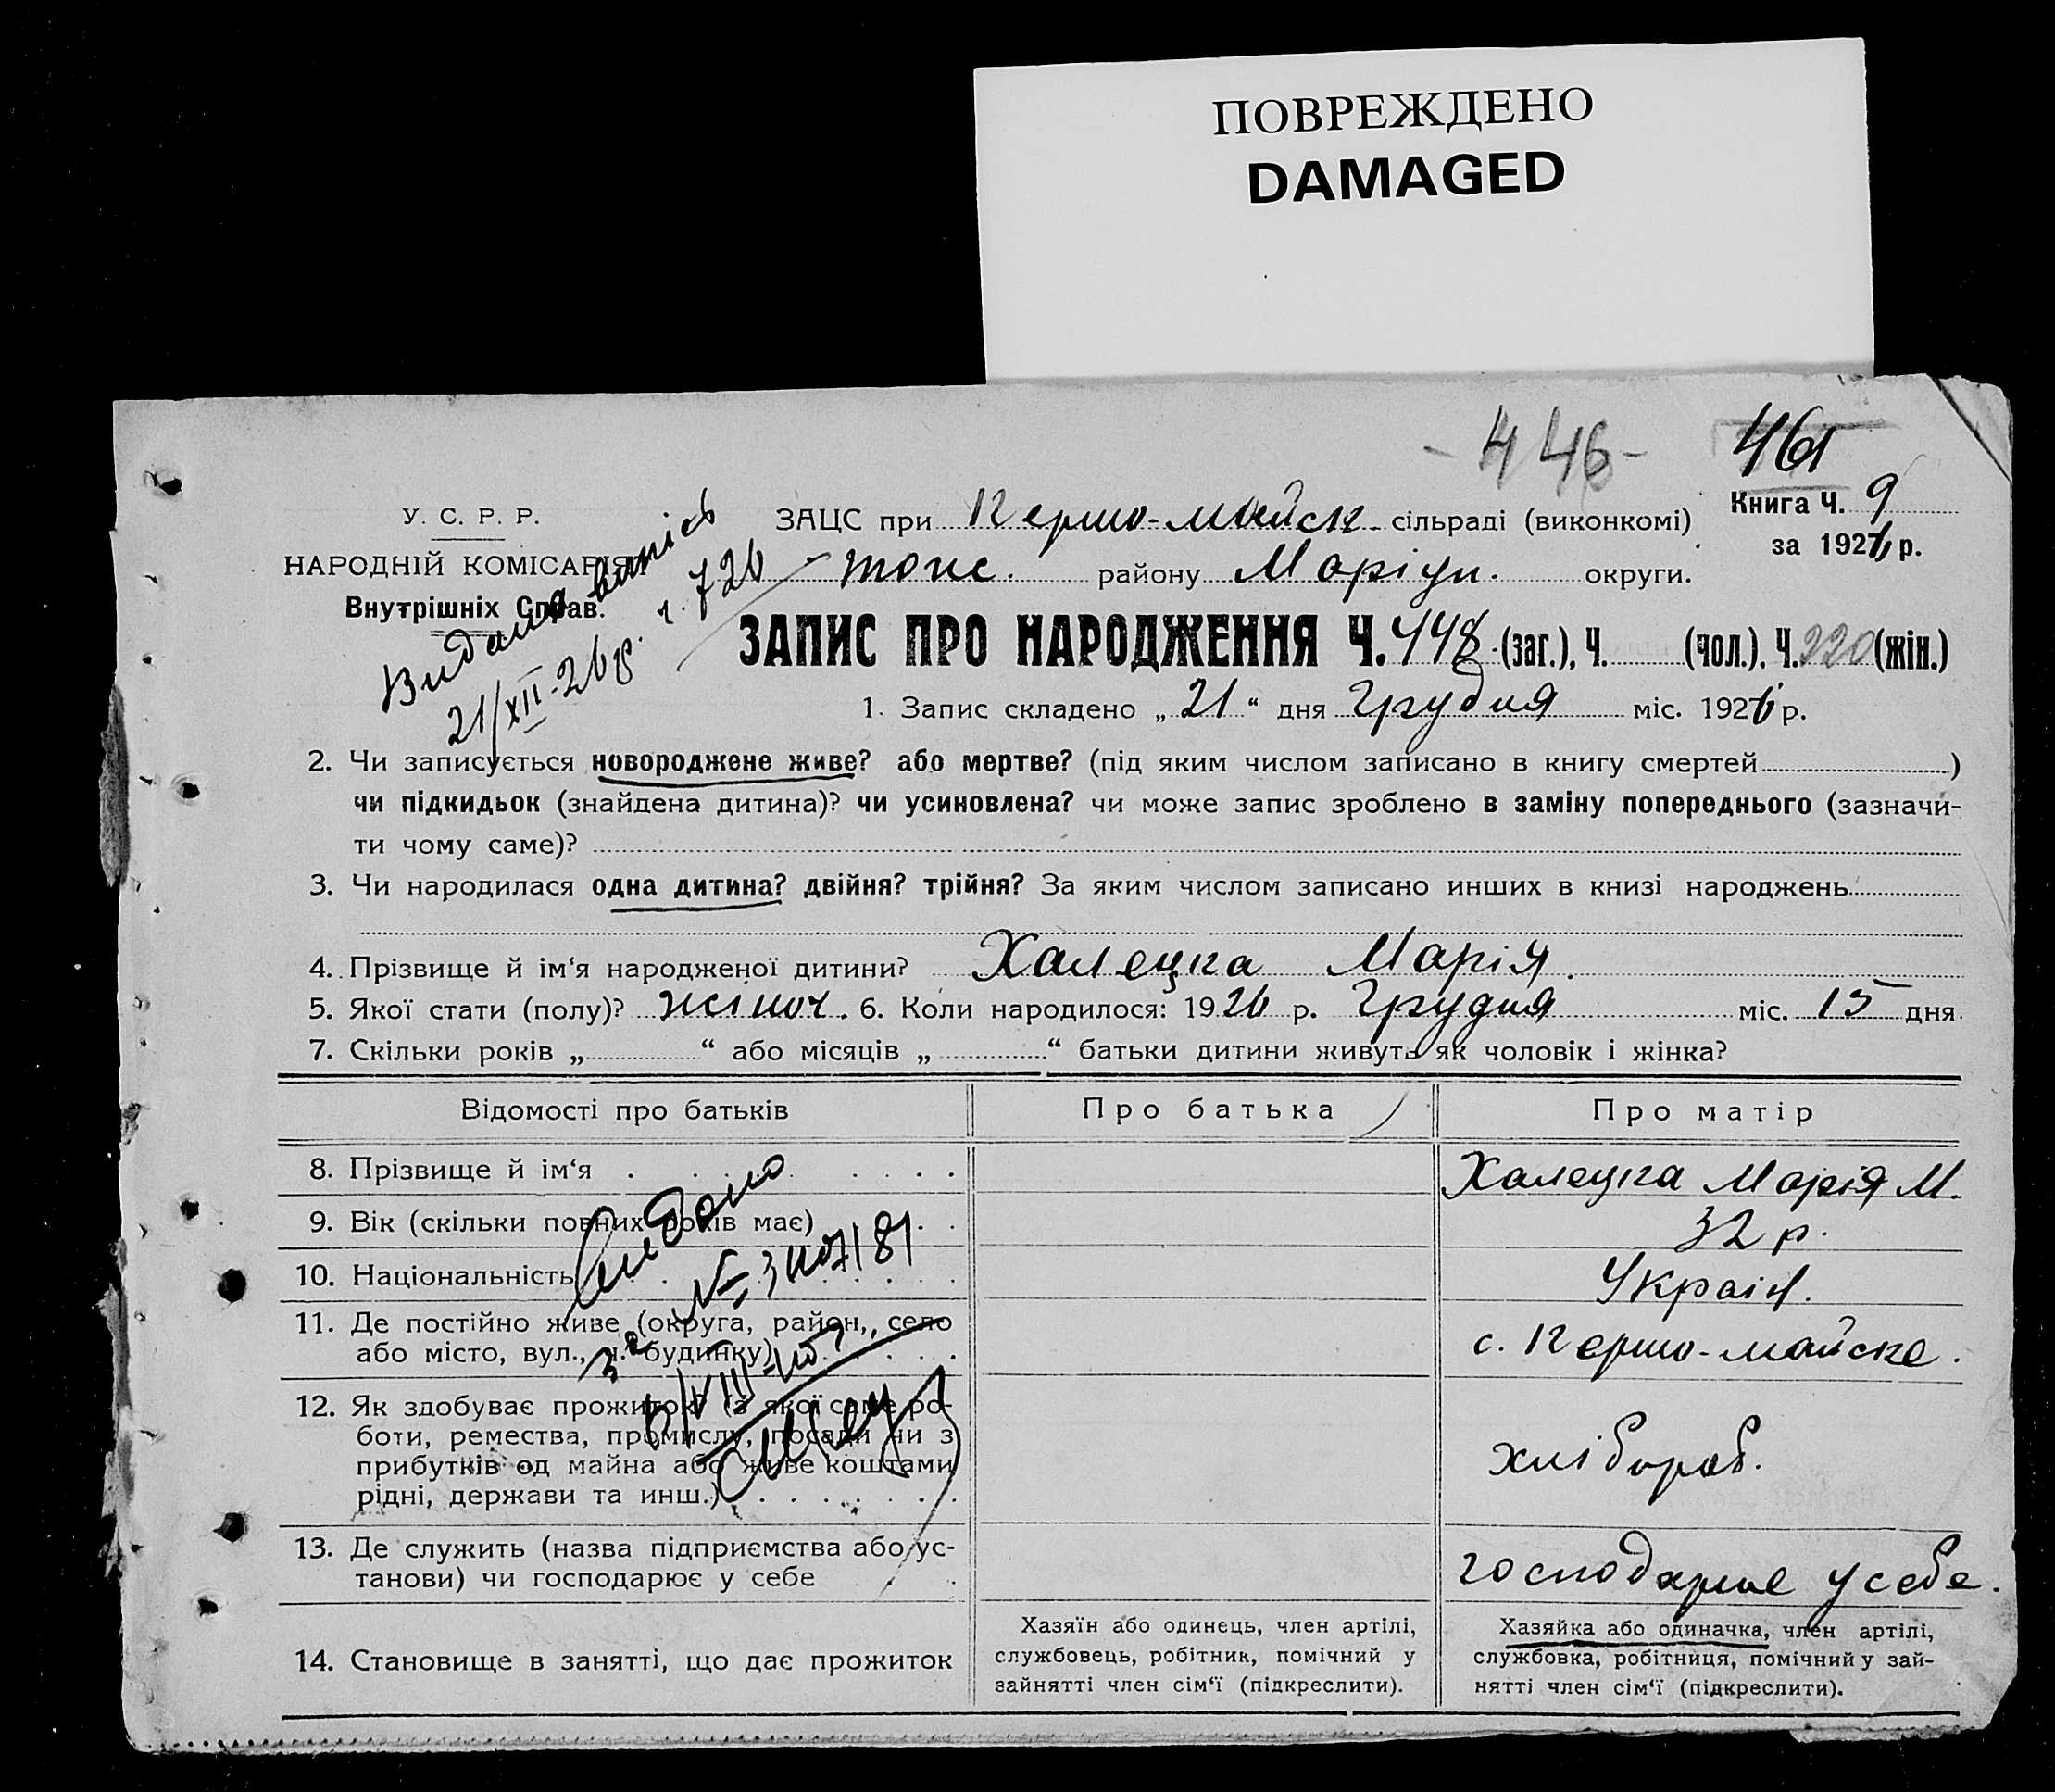 ПОВРЕЖДЕНО
DAMAGED
- 446 -
461
Книга Ч. 9
за 1926 р.
У. С. Р. Р.
НАРОДНІЙ КОМІСАРІЯТ
Внутрішніх Справ.
Видана випісь
21/XII-26р. ч. 726
ЗАЦС при Першо-майск. сільраді (виконкомі)
токс. району Маріуп. округи.
ЗАПИС ПРО НАРОДЖЕННЯ Ч. 448 (заг.), Ч. (чол.). Ч. 220 (жін.)
1. Запис складено „ 21 “ дня Грудня міс. 1926 р.
2. Чи записується новороджене живе? або мертве? (під яким числом записано в книгу смертей )
чи підкидьок (знайдена дитина)? чи усиновлена? чи може запис зроблено в заміну попереднього (зазначи-
ти чому саме)?
3. Чи народилася одна дитина? двійня? трійня? За яким числом записано инших в книзі народжень
4. Прізвище й ім‘я народженої дитини? Халецка Марія.
5. Якої стати (полу)? жіноч. 6. Коли народилося: 1926 р. Грудня міс. 15 дня.
7. Скільки років „ “ або місяців „ “ батьки дитини живуть як чоловік і жінка?
Відомості про батьків
Про батька
Про матір
8. Прізвище й ім‘я
Халецка Марія М.
9. Вік (скільки повних років має)
32 р.
10. Національність
Україн.
11. Де постійно живе (округа, район, село
або місто, вул., ч. будинку)
с. Першо-майске.
12. Як здобуває прожиток? (з якої саме ро-
боти, ремества, промислу, посади чи з
прибутків од майна або живе коштами
рідні, держави та инш.)
хлібороб.
13. Де служить (назва підприємства або ус-
танови) чи господарює у себе
господарює у себе.
14. Становище в занятті, що дає прожиток
Хазяїн або одинець, член артілі,
службовець, робітник, помічний у
зайнятті член сім‘ї (підкреслити).
Хазяйка або одиначка, член артілі,
службовка, робітниця, помічний у зай-
нятті член сім‘ї (підкреслити).